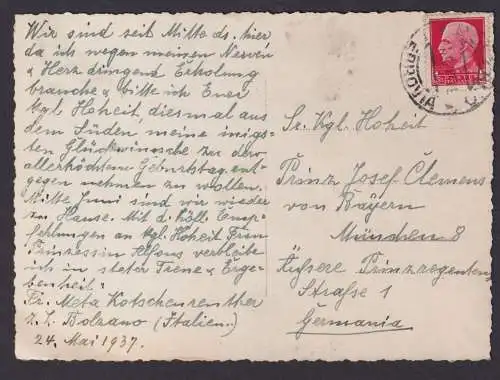 Wir sind seit Mitte ds. hier
da ich wegen meinen Nerven
& Herz dringend Erholung
brauche & bitte ich Euer
kgl. Hoheit, diesmal aus
dem Süden meine inigs-
ten Glückwünsche zu dero
allerhöchsten Geburtstag ent-
gegen nehmen zu wollen.
Mitte Juni sind wir wieder
zu Hause. Mit d. höfl. Emp-
fehlungen an kgl. Hoheit Frau
Prinzessin Alfons verbleibe
ich in steter Treue & Erge-
benheit:
Fr. Meta Kotschenreuther
z. Z. Bolzano (Italien.)
24. Mai 1937.
Sr. Kgl. Hoheit
Prinz Josef Clemens
von Bayern
München 8
Äußere Prinzregenten-
Straße 1
Germania